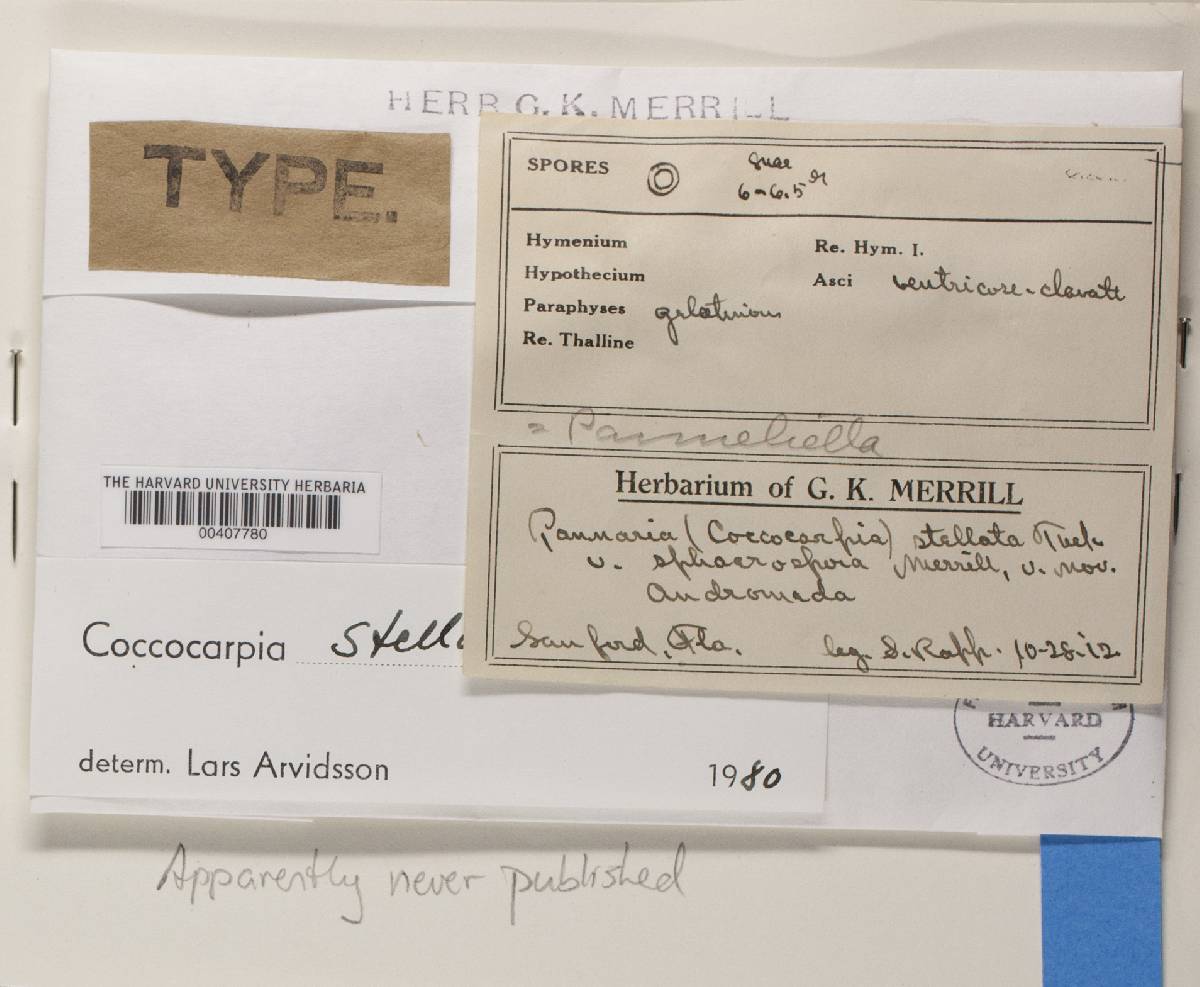 HERB G. K. MERRILL
TYPE.
SPORES
6-6.5
Hymenium
Re. Hym. I.
Hypothecium
Asci ventricose-clavate
Paraphyses gelatinous
Re. Thalline
= Parmeliella
THE HARVARD UNIVERSITY HERBARIA
00407780
Herbarium of G. K. MERRILL
Pannaria (Coccocarpia) stellata Tuck.
v. sphaerospora Merrill, v. nov.
Andromeda
Sanford, Fla. leg. S. Rapp. 10-28-12.
Coccocarpia stell
determ. Lars Arvidsson 1980
HARVARD
UNIVERSITY
Apparently never published